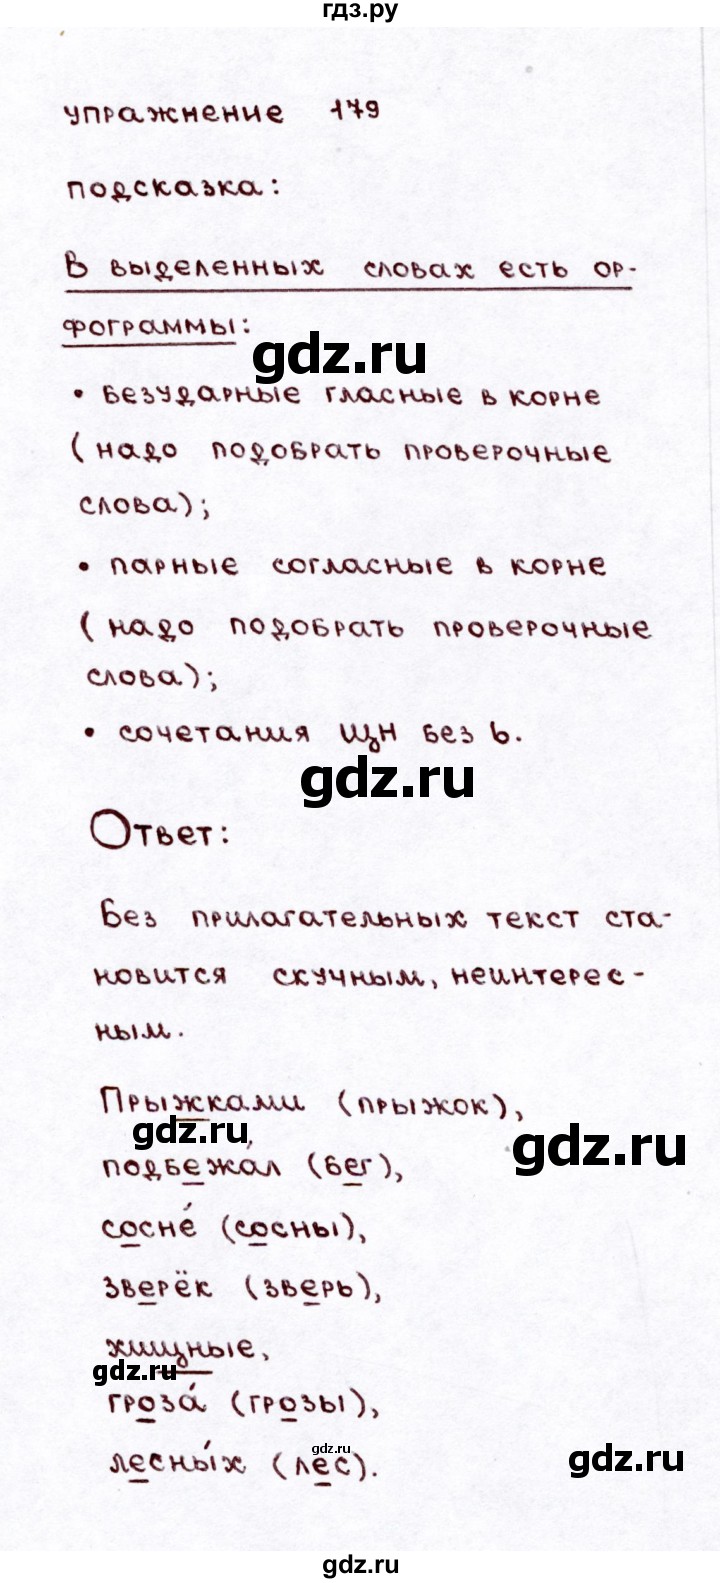 гдз.ру
упражнение 179
подсказка:
В выделенных словах есть ор-
фограммы:
gdz.ru
• безударные гласные в корне
(надо подобрать проверочные
слова);
• парные согласные в корне
(надо подобрать проверочные
слова);
• сочетания щн без ь.
gdz.ru
Ответ:
Без прилагательных текст ста-
новится скучным, неинтерес-
ным.
Прыжками (прыжок),
gdz.ru
gdz.ru
подбежа́л (бег),
сосне́ (сосны),
зверёк (зверь),
хищные,
gdz.ru
гроза́ (грозы),
gdz.ru
лесны́х (лес).
gdz.ru
gdz.ru